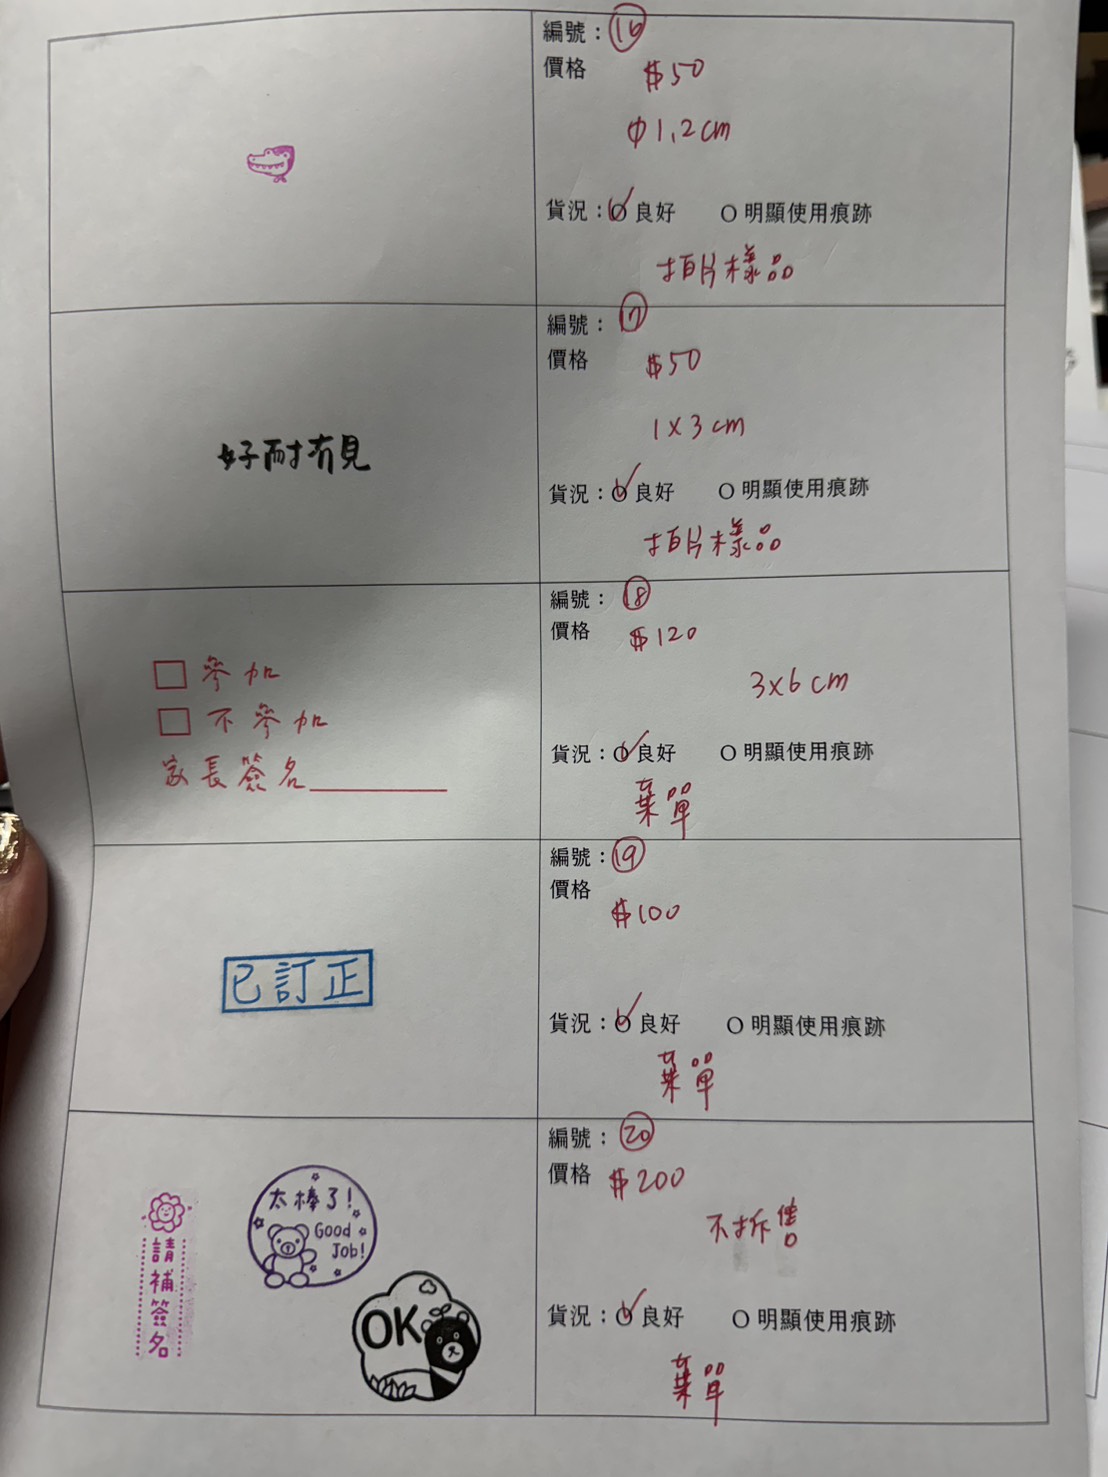 編號：⑯
價格 $50
φ1.2cm
貨況：○良好 ○明顯使用痕跡
拍片樣品
好耐冇見
編號：⑰
價格 $50
1x3cm
貨況：○良好 ○明顯使用痕跡
拍片樣品
□參加
□不參加
家長簽名＿＿＿＿
編號：⑱
價格 $120
3x6cm
貨況：○良好 ○明顯使用痕跡
葉單
已訂正
編號：⑲
價格 $100
貨況：○良好 ○明顯使用痕跡
葉單
請補簽名
太棒了!
Good
Job!
OK
編號：⑳
價格 $200
不拆售
貨況：○良好 ○明顯使用痕跡
葉單